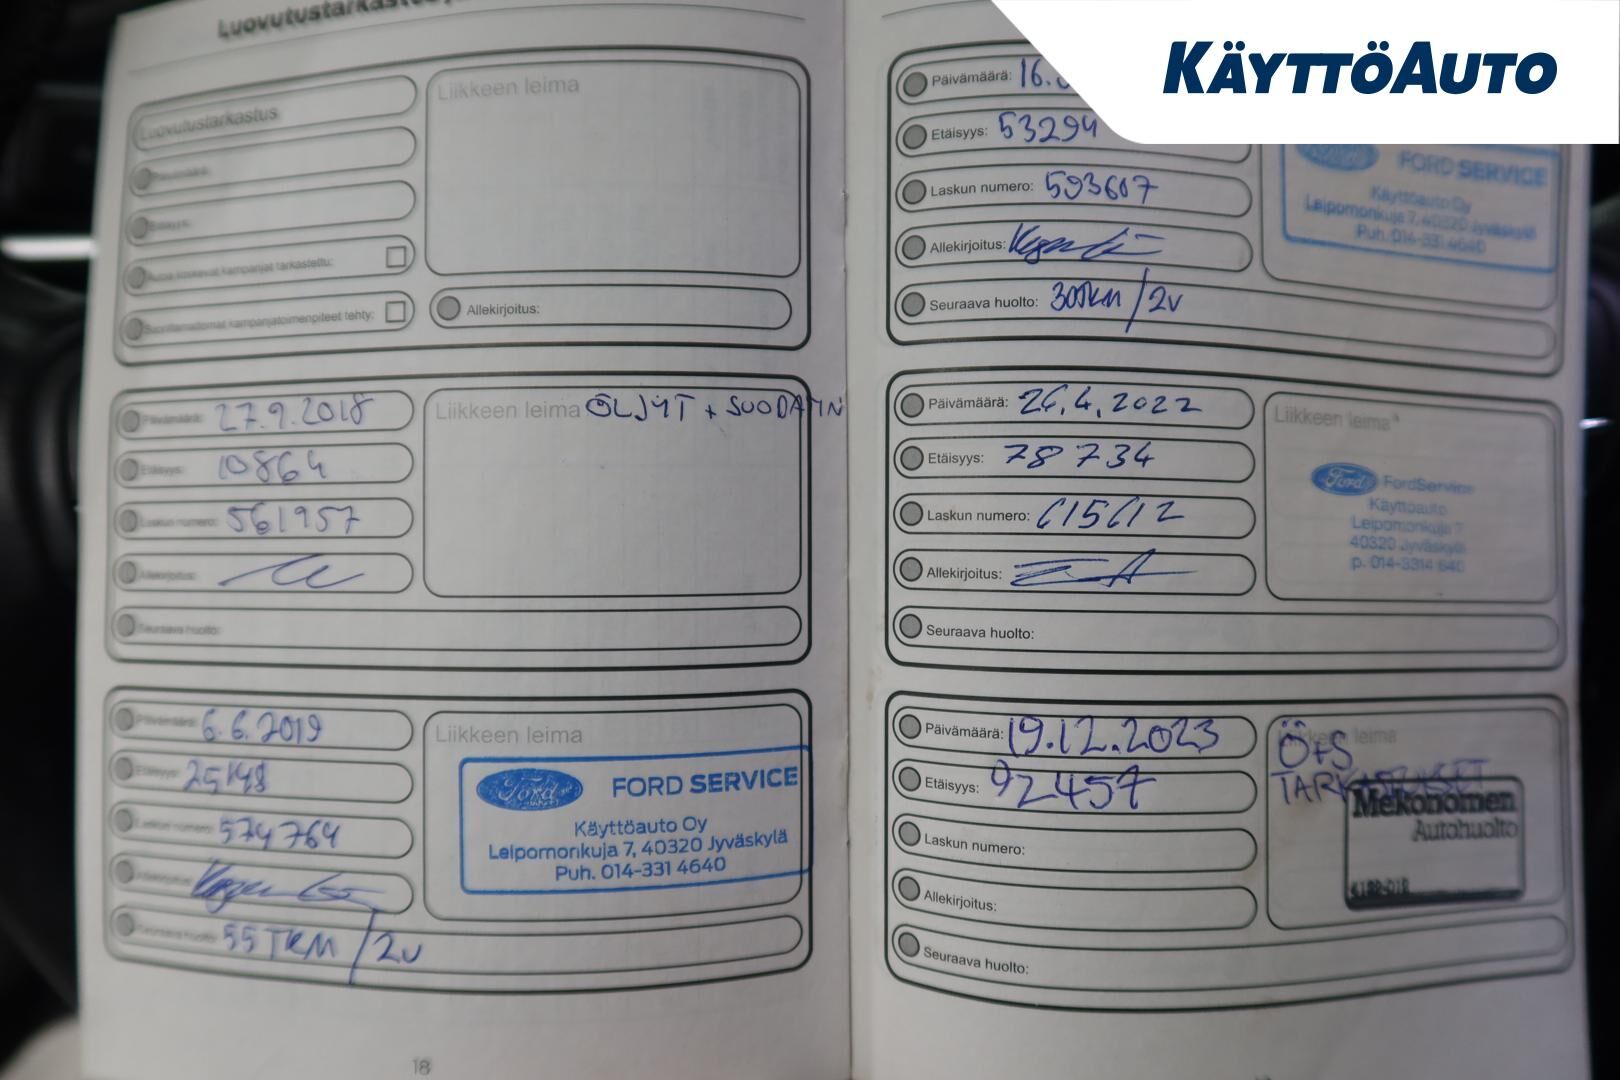 Luovutustarkastus
Luovutustarkastus
Päivämäärä:
Etäisyys:
Autoa koskevat kampanjat tarkastettu:
Suorittamattomat kampanjatoimenpiteet tehty:
Liikkeen leima
Allekirjoitus:
Päivämäärä: 27.9.2018
Etäisyys: 10864
Laskun numero: 561957
Allekirjoitus:
Seuraava huolto:
Liikkeen leima ÖLJYT + SUODATIN
Päivämäärä: 6.6.2019
Etäisyys: 25148
Laskun numero: 574764
Allekirjoitus:
Seuraava huolto: 55TKM / 2v
Liikkeen leima
Ford FORD SERVICE
Käyttöauto Oy
Leipomonkuja 7, 40320 Jyväskylä
Puh. 014-331 4640
18
KÄYTTÖAUTO
Päivämäärä: 16.
Etäisyys: 53294
Laskun numero: 593607
Allekirjoitus:
Seuraava huolto: 30TKM / 2v
Ford FORD SERVICE
Käyttöauto Oy
Leipomonkuja 7, 40320 Jyväskylä
Puh. 014-331 4640
Päivämäärä: 26.4.2022
Etäisyys: 78734
Laskun numero: 615612
Allekirjoitus:
Seuraava huolto:
Liikkeen leima
Ford FordService
Käyttöauto
Leipomonkuja 7
40320 Jyväskylä
p. 014-3314 640
Päivämäärä: 19.12.2023
Etäisyys: 92457
Laskun numero:
Allekirjoitus:
Seuraava huolto:
Liikkeen leima
Ö+S
TARKASTUKSET
Mekonomen
Autohuolto